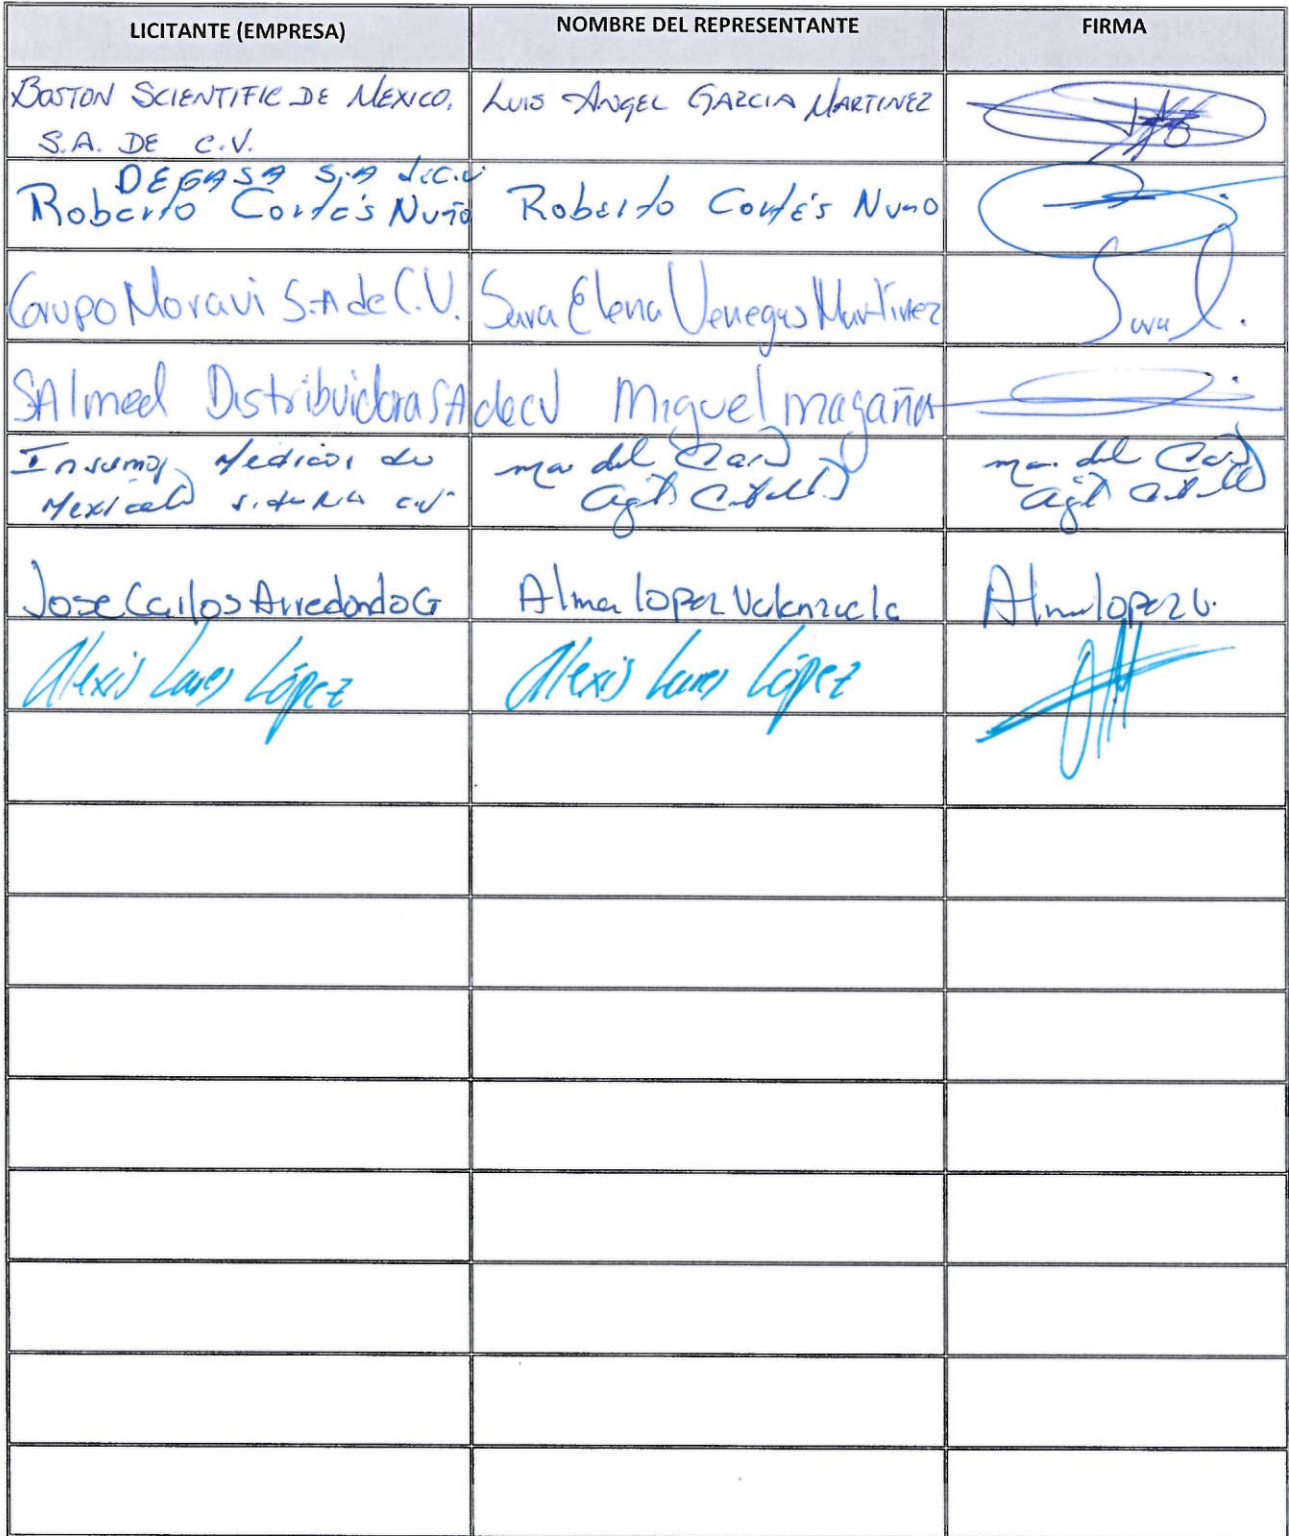 LICITANTE (EMPRESA) NOMBRE DEL REPRESENTANTE FIRMA
BOSTON SCIENTIFIC DE MEXICO, LUIS ANGEL GARCIA MARTINEZ
S.A. DE C.V.
DEGASA S.A de C.V
Roberto Cortés Nuño Roberto Cortés Nuño
Grupo Moravi S.A de C.V. Sara Elena Venegas Martinez Sara
SAlmed Distribuidora SA de cv Miguel magaña
Insumos Medicos de ma. del ma. del
Mexicali c.v
Jose Carlos Arredondo G Alma lopez Valenzuela Alma lopez V.
Alexis Lares López Alexis Lares López